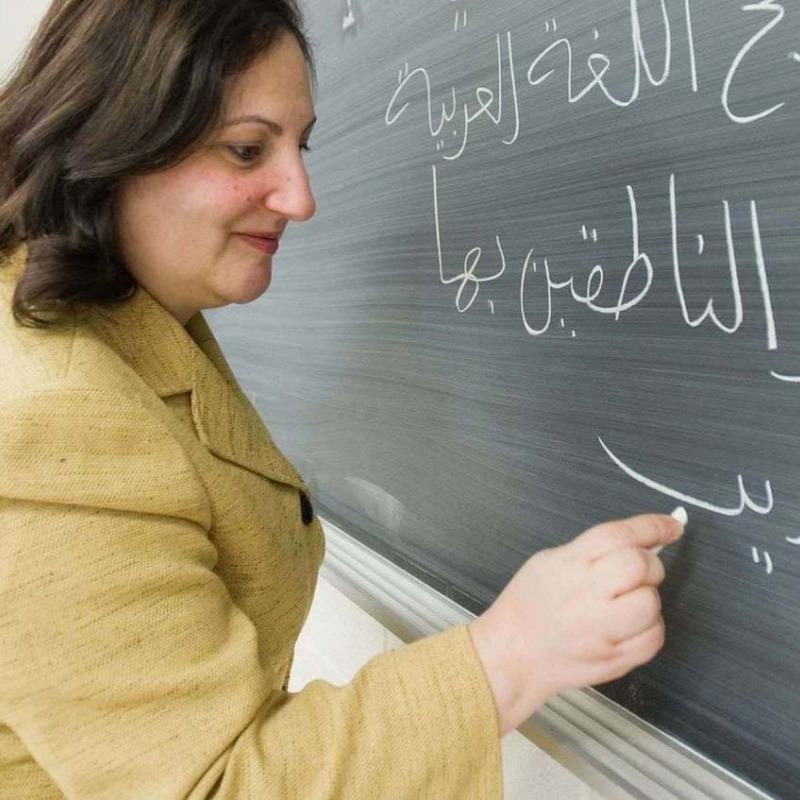 اللغة العربية
الناطقين بها